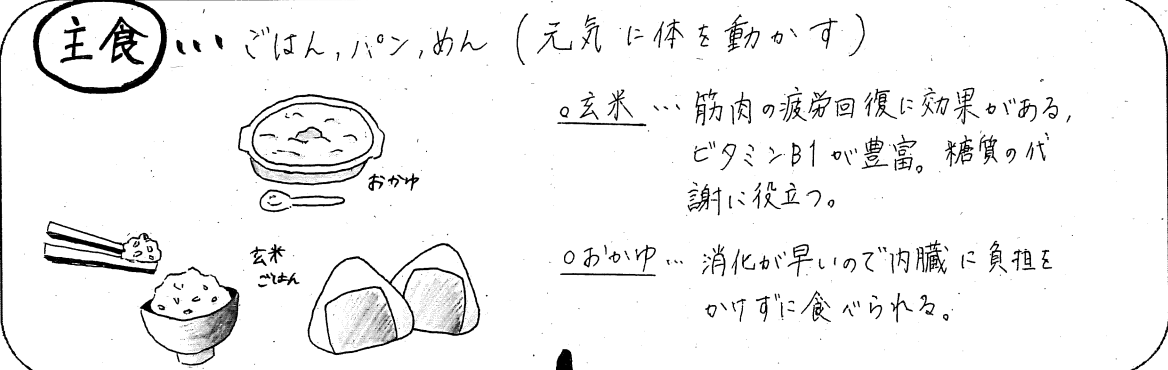 主食…ごはん,パン,めん(元気に体を動かす)
おかゆ
玄米
ごはん
○玄米…筋肉の疲労回復に効果がある,
ビタミンB1が豊富。糖質の代
謝に役立つ。
○おかゆ…消化が早いので内臓に負担を
かけずに食べられる。